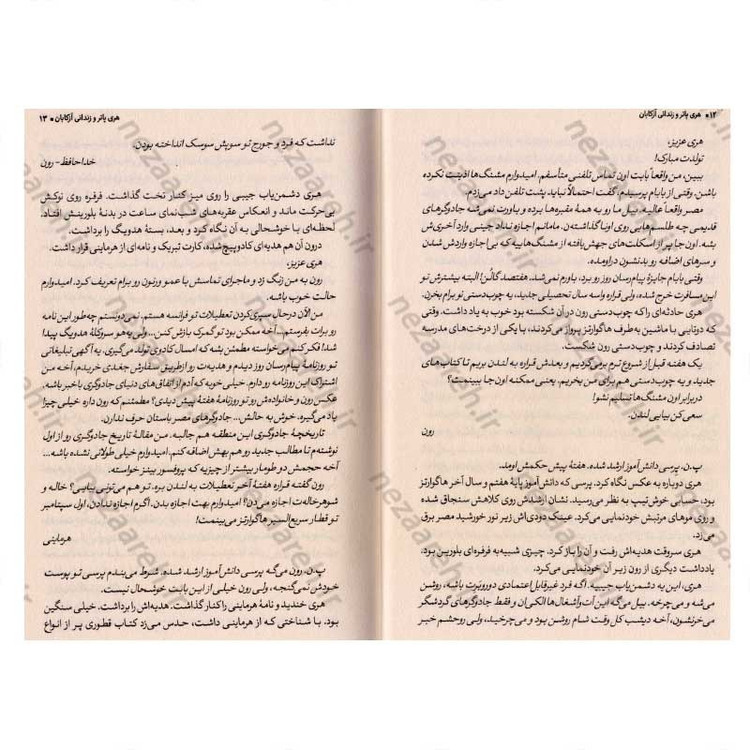 ۱۲ • هری پاتر و زندانی آزکابان
هری عزیز،
تولدت مبارک!
ببین، من واقعاً بابت اون تماس تلفنی متأسفم. امیدوارم مشنگ‌ها اذیتت نکرده
باشن. وقتی از بابام پرسیدم، گفت احتمالاً نباید پشت تلفن داد می‌زدم.
مصر واقعاً عالیه. بیل ما رو به همهٔ مقبره‌ها برده و باورت نمی‌شه جادوگرهای
قدیمی چه طلسم‌هایی روی اونا گذاشته‌ن. مامانم اجازه نداد جینی وارد آخریش
بشه. اون جا پر از اسکلت‌های جهش‌یافته از مشنگ‌هاییه که بی‌اجازه واردش شدن
و سرهای اضافه رو بدنشون دراومده.
وقتی بابام جایزهٔ پیام‌رسان روز رو برد، باورم نمی‌شد. هفتصد گالن! البته بیشترش تو
این مسافرت خرج شده، ولی قراره واسه سال تحصیلی جدید، یه چوب‌دستی نو برام بخرن.
هری حادثه‌ای را که چوب‌دستی رون در آن شکسته بود خوب به یاد داشت. وقتی
که دوتایی با ماشین به‌طرف هاگوارتز پرواز می‌کردند، با یکی از درخت‌های مدرسه
تصادف کردند و چوب‌دستی رون شکست.
یک هفته قبل از شروع ترم برمی‌گردیم و بعدش قراره به لندن بریم تا کتاب‌های
جدید و یه چوب‌دستی هم برای من بخریم. یعنی ممکنه اون جا ببینمت؟
در برابر اون مشنگ‌ها تسلیم نشو!
سعی کن بیایی لندن.
رون
پ.ن. پرسی دانش‌آموز ارشد شده. هفتهٔ پیش حکمش اومد.
هری دوباره به عکس نگاه کرد. پرسی که دانش‌آموز پایهٔ هفتم و سال آخر هاگوارتز
بود، حسابی خوش‌تیپ به نظر می‌رسید. نشان ارشدش روی کلاهش سنجاق شده
و روی موهای مرتبش خودنمایی می‌کرد. عینک دودی‌اش زیر نور خورشید مصر برق
می‌زد.
هری سروقت هدیه‌اش رفت و آن را باز کرد. چیزی شبیه به فرفره‌ای بلورین بود.
یادداشت دیگری از رون زیر آن خودنمایی می‌کرد.
هری، این یه دشمن‌یاب جیبیه. اگه فرد غیرقابل‌اعتمادی دوروبرت باشه، روشن
می‌شه و می‌چرخه. بیل می‌گه این آت‌وآشغال‌ها الکی‌ان و فقط جادوگرهای گردشگر
می‌خرنشون، آخه دیشب کل وقت شام روشن بود و می‌چرخید. ولی روحشم خبر
هری پاتر و زندانی آزکابان • ۱۳
نداشت که فرد و جورج تو سوپش سوسک انداخته بودن.
خداحافظ - رون
هری دشمن‌یاب جیبی را روی میز کنار تخت گذاشت. فرفره روی نوکش
بی‌حرکت ماند و انعکاس عقربه‌های شب‌نمای ساعت در بدنهٔ بلورینش افتاد.
لحظه‌ای با خوشحالی به آن نگاه کرد و بعد، بستهٔ هدویگ را برداشت.
درون آن هم هدیه‌ای کادوپیچ‌شده، کارت تبریک و نامه‌ای از هرماینی قرار داشت.
هری عزیز،
رون به من زنگ زد و ماجرای تماسش با عمو ورنون رو برام تعریف کرد. امیدوارم
حالت خوب باشه.
من الآن درحال سپری‌کردن تعطیلات تو فرانسه هستم. نمی‌دونستم چه‌طور این نامه
رو برات بفرستم... آخه ممکن بود تو گمرک بازش کنن... ولی یه‌هو سروکلهٔ هدویگ پیدا
شد! فکر کنم می‌خواسته مطمئن بشه که امسال کادوی تولد می‌گیری. یه آگهی تبلیغاتی
تو روزنامهٔ پیام‌رسان روز دیدم و هدیه‌ت رو ازطریق سفارش جغدی خریدم. آخه من
اشتراک این روزنامه رو دارم. خیلی خوبه که آدم از اتفاق‌های دنیای جادوگری باخبر باشه.
عکس رون و خانواده‌ش رو تو روزنامهٔ هفتهٔ پیش دیدی؟ مطمئنم که رون داره خیلی چیزا
یاد می‌گیره. خوش به حالش... جادوگرهای مصر باستان حرف ندارن.
تاریخچهٔ جادوگری این منطقه هم جالبه. من مقالهٔ تاریخ جادوگری رو از اول
نوشته‌م تا مطالب جدید رو هم بهش اضافه کنم. امیدوارم خیلی طولانی نشده باشه...
آخه حجمش دو طومار بیشتر از چیزیه که پروفسور بینز خواسته.
رون گفته قراره هفتهٔ آخر تعطیلات به لندن بره. تو هم می‌تونی بیایی؟ خاله و
شوهرخاله‌ت اجازه می‌دن؟ امیدوارم بهت اجازه بدن. اگرم اجازه ندادن، اول سپتامبر
تو قطار سریع‌السیر هاگوارتز می‌بینمت!
هرماینی
پ.ن. رون می‌گه پرسی دانش‌آموز ارشد شده. شرط می‌بندم پرسی تو پوست
خودش نمی‌گنجه، ولی رون خیلی از این بابت خوشحال نیست.
هری خندید و نامهٔ هرماینی را کنار گذاشت. هدیه‌اش را برداشت. خیلی سنگین
بود. با شناختی که از هرماینی داشت، حدس می‌زد کتاب قطوری پر از انواع
nezaareh.ir
nezaareh.ir
nezaareh.ir
nezaareh.ir
nezaareh.ir
nezaareh.ir